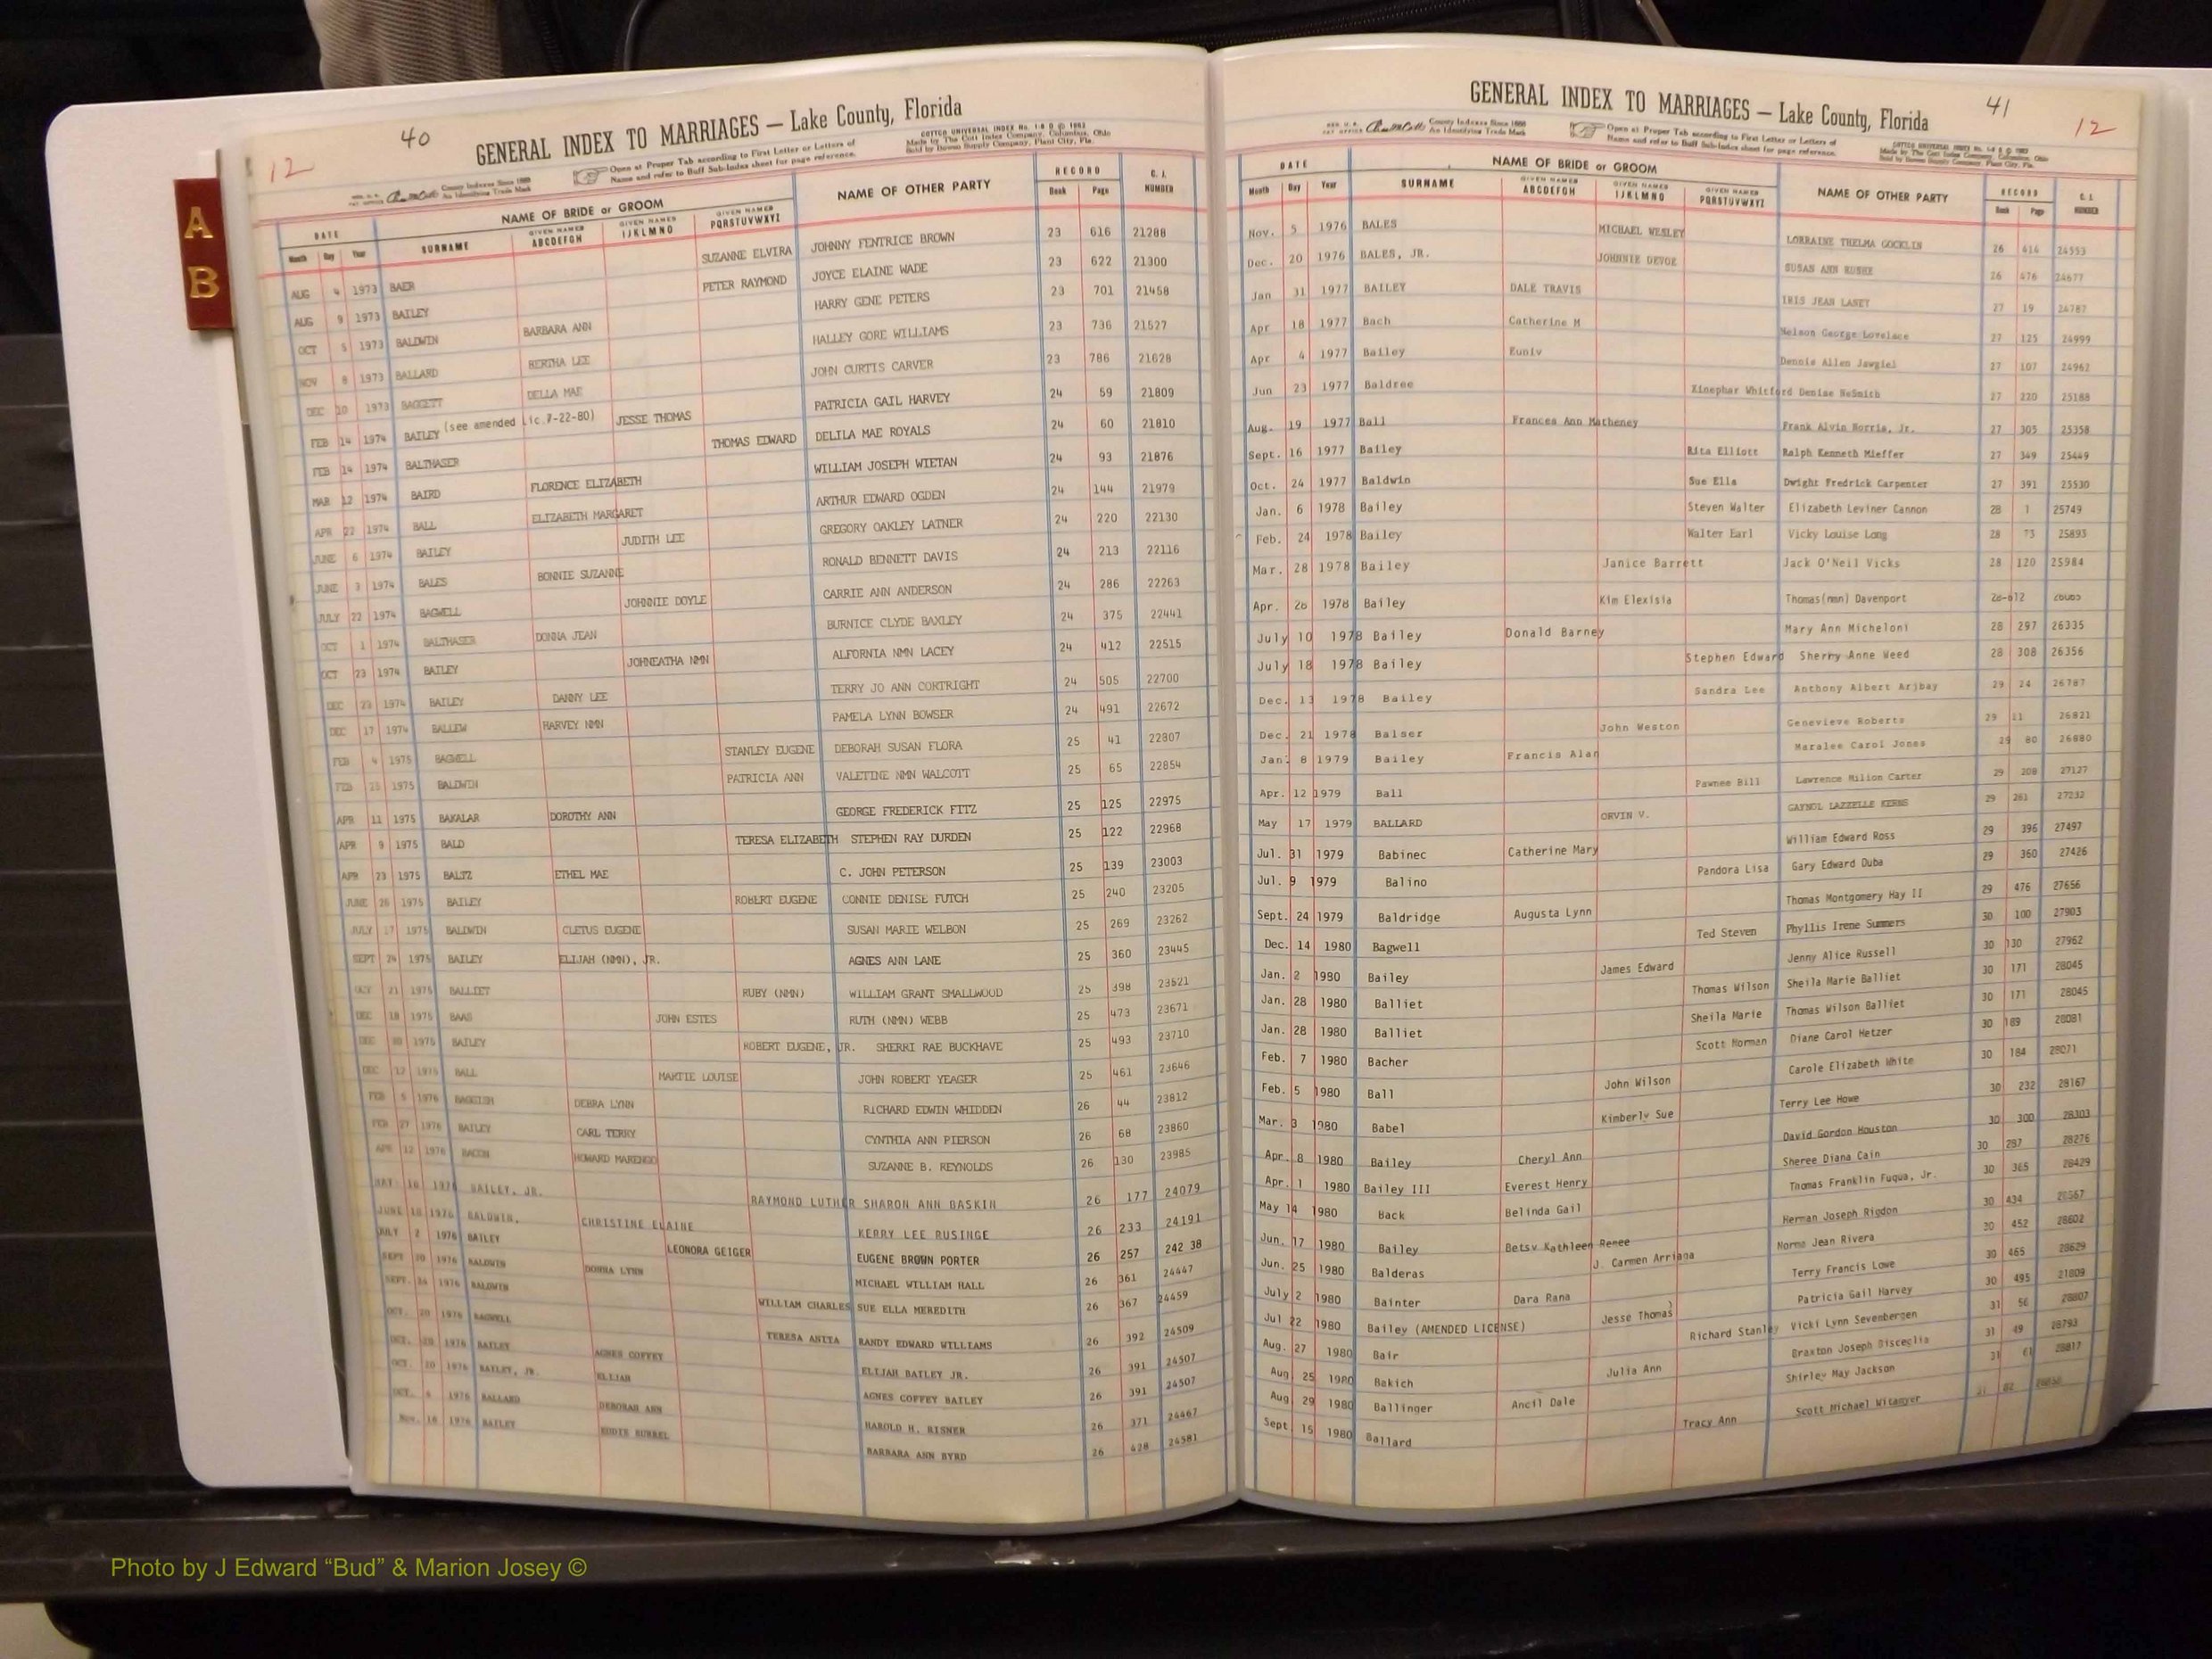 A
B
12
40
GENERAL INDEX TO MARRIAGES — Lake County, Florida
County Indexes Since 1888
An Identifying Trade Mark
Open at Proper Tab according to First Letter or Letters of
Name and refer to Buff Sub-Index sheet for page reference.
COTTCO UNIVERSAL INDEX
Made by The Cott Index Company, Columbus, Ohio
Sold by Bowen Supply Company, Plant City, Fla.
DATE NAME OF BRIDE or GROOM NAME OF OTHER PARTY RECORD C. I. NUMBER
Month Day Year SURNAME GIVEN NAMES ABCDEFGH GIVEN NAMES IJKLMNO GIVEN NAMES PQRSTUVWXYZ Book Page
AUG 4 1973 BAER SUZANNE ELVIRA JOHNNY FENTRICE BROWN 23 616 21288
AUG 9 1973 BAILEY PETER RAYMOND JOYCE ELAINE WADE 23 622 21300
OCT 5 1973 BALDWIN BARBARA ANN HARRY GENE PETERS 23 701 21458
NOV 8 1973 BALLARD BERTHA LEE HALLEY GORE WILLIAMS 23 736 21527
DEC 10 1973 BAGGETT DELLA MAE JOHN CURTIS CARVER 23 786 21628
FEB 14 1974 BAILEY (see amended Lic.7-22-80) JESSE THOMAS PATRICIA GAIL HARVEY 24 59 21809
FEB 14 1974 BALTHASER THOMAS EDWARD DELILA MAE ROYALS 24 60 21810
MAR 12 1974 BAIRD FLORENCE ELIZABETH WILLIAM JOSEPH WIETAN 24 93 21876
APR 22 1974 BALL ELIZABETH MARGARET ARTHUR EDWARD OGDEN 24 144 21979
JUNE 6 1974 BAILEY JUDITH LEE GREGORY OAKLEY LATNER 24 220 22130
JUNE 3 1974 BALES BONNIE SUZANNE RONALD BENNETT DAVIS 24 213 22116
JULY 22 1974 BAGWELL JOHNNIE DOYLE CARRIE ANN ANDERSON 24 286 22263
OCT 1 1974 BALTHASER DONNA JEAN BURNICE CLYDE BAXLEY 24 375 22441
OCT 23 1974 BAILEY JOHNEATHA NMN ALFORNIA NMN LACEY 24 412 22515
DEC 1974 BAILEY DANNY LEE TERRY JO ANN CORTRIGHT 24 505 22700
DEC 17 1974 BALLEW HARVEY NMN PAMELA LYNN BOWSER 24 491 22672
FEB 4 1975 BAGWELL STANLEY EUGENE DEBORAH SUSAN FLORA 25 41 22807
FEB 1975 BALDWIN PATRICIA ANN VALETINE NMN WALCOTT 25 65 22854
APR 11 1975 BAKALAR DOROTHY ANN GEORGE FREDERICK FITZ 25 125 22975
APR 9 1975 BALD TERESA ELIZABETH STEPHEN RAY DURDEN 25 122 22968
APR 23 1975 BALTZ ETHEL MAE C. JOHN PETERSON 25 139 23003
JUNE 26 1975 BAILEY ROBERT EUGENE CONNIE DENISE FUTCH 25 240 23205
JULY 17 1975 BALDWIN CLETUS EUGENE SUSAN MARIE WELBON 25 269 23262
SEPT 24 1975 BAILEY ELIJAH (NMN), JR. AGNES ANN LANE 25 360 23445
OCT 21 1975 BALLIET RUBY (NMN) WILLIAM GRANT SMALLWOOD 25 398 23521
DEC 18 1975 BAAS JOHN ESTES RUTH (NMN) WEBB 25 473 23671
DEC 30 1975 BAILEY ROBERT EUGENE, JR. SHERRI RAE BUCKHAVE 25 493 23710
DEC 12 1975 BALL MARTIE LOUISE JOHN ROBERT YEAGER 25 461 23646
FEB 5 1976 DEBRA LYNN RICHARD EDWIN WHIDDEN 26 44 23812
FEB 27 1976 BAILEY CARL TERRY CYNTHIA ANN PIERSON 26 68 23860
APR 12 1976 BACON HOWARD MARENGO SUZANNE B. REYNOLDS 26 130 23985
MAY 1976 BAILEY, JR. RAYMOND LUTHER SHARON ANN BASKIN 26 177 24079
JUNE 18 1976 BALDWIN, CHRISTINE ELAINE KERRY LEE RUSINGE 26 233 24191
JULY 2 1976 BAILEY LEONORA GEIGER EUGENE BROWN PORTER 26 257 242 38
SEPT 1976 BALDWIN DONNA LYNN MICHAEL WILLIAM HALL 26 361 24447
SEPT. 24 1976 BALDWIN WILLIAM CHARLES SUE ELLA MEREDITH 26 367 24459
OCT. 20 1976 BAGWELL TERESA ANITA RANDY EDWARD WILLIAMS 26 392 24509
OCT. 1976 BAILEY AGNES COFFEY ELIJAH BAILEY JR. 26 391 24507
OCT. 1976 BAILEY, JR. ELIJAH AGNES COFFEY BAILEY 26 391 24507
OCT. 1976 BALLARD DEBORAH ANN HAROLD H. RISNER 26 371 24467
Nov. 16 1976 BAILEY EDDIE BURREL BARBARA ANN BYRD 26 428 24581
GENERAL INDEX TO MARRIAGES — Lake County, Florida
41
12
County Indexes Since 1888
An Identifying Trade Mark
Open at Proper Tab according to First Letter or Letters of
Name and refer to Buff Sub-Index sheet for page reference.
DATE NAME OF BRIDE or GROOM NAME OF OTHER PARTY RECORD C. I. NUMBER
Month Day Year SURNAME GIVEN NAMES ABCDEFGH GIVEN NAMES IJKLMNO GIVEN NAMES PQRSTUVWXYZ Book Page
Nov. 5 1976 BALES MICHAEL WESLEY LORRAINE THELMA GOCKLIN 26 414 24553
Dec. 20 1976 BALES, JR. JOHNNIE DEVOE SUSAN ANN 26 476 24677
Jan 31 1977 BAILEY DALE TRAVIS IRIS JEAN LANEY 27 19 24787
Apr 18 1977 Bach Catherine M Nelson George Lovelace 27 125 24999
Apr 4 1977 Bailey Euniv Dennis Allen Jawgiel 27 107 24962
Jun 23 1977 Baldree Xinephar Whitford Denise NeSmith 27 220 25188
Aug. 19 1977 Ball Frances Ann Matheney Frank Alvin Norris, Jr. 27 305 25358
Sept. 16 1977 Bailey Rita Elliott Ralph Kenneth Mieffer 27 349 25449
Oct. 24 1977 Baldwin Sue Ella Dwight Fredrick Carpenter 27 391 25530
Jan. 6 1978 Bailey Steven Walter Elizabeth Leviner Cannon 28 1 25749
Feb. 24 1978 Bailey Walter Earl Vicky Louise Long 28 73 25893
Mar. 28 1978 Bailey Janice Barrett Jack O'Neil Vicks 28 120 25984
Apr. 1978 Bailey Kim Elexisia Thomas(nmn) Davenport
July 10 1978 Bailey Donald Barney Mary Ann Micheloni 28 297 26335
July 18 1978 Bailey Stephen Edward Sherry Anne Weed 28 308 26356
Dec. 13 1978 Bailey Sandra Lee Anthony Albert Arjbay 29 24 26787
Dec. 21 1978 Balser John Weston Genevieve Roberts 29 26821
Jan. 8 1979 Bailey Francis Alan Maralee Carol Jones 29 80 26880
Apr. 12 1979 Ball Pawnee Bill Lawrence Milion Carter 29 208 27127
May 17 1979 BALLARD ORVIN V. GAYNOL LAZZELLE KERNS 29 261 27232
Jul. 31 1979 Babinec Catherine Mary William Edward Ross 29 396 27497
Jul. 9 1979 Balino Pandora Lisa Gary Edward Duba 29 360 27426
Sept. 24 1979 Baldridge Augusta Lynn Thomas Montgomery Hay II 29 476 27656
Dec. 14 1980 Bagwell Ted Steven Phyllis Irene Summers 30 100 27903
Jan. 2 1980 Bailey James Edward Jenny Alice Russell 30 130 27962
Jan. 28 1980 Balliet Thomas Wilson Sheila Marie Balliet 30 171 28045
Jan. 28 1980 Balliet Sheila Marie Thomas Wilson Balliet 30 171 28045
Feb. 7 1980 Bacher Scott Norman Diane Carol Hetzer 30 189 28081
Feb. 5 1980 Ball John Wilson Carole Elizabeth White 30 184 28071
Mar. 3 1980 Babel Kimberly Sue Terry Lee Howe 30 232 28167
Apr. 8 1980 Bailey Cheryl Ann David Gordon Houston 30 300 28303
Apr. 1 1980 Bailey III Everest Henry Sheree Diana Cain 30 287 28276
May 14 1980 Back Belinda Gail Thomas Franklin Fuqua, Jr. 30 365 28429
Jun. 17 1980 Bailey Betsy Kathleen Renee Herman Joseph Rigdon 30 434 28567
Jun. 25 1980 Balderas J. Carmen Arriana Norma Jean Rivera 30 452 28602
July 2 1980 Bainter Dara Rana Terry Francis Lowe 30 465 28629
Jul 22 1980 Bailey (AMENDED LICENSE) Jesse Thomas Patricia Gail Harvey 30 495 21809
Aug. 27 1980 Bair Richard Stanley Vicki Lynn Sevenbergen 31 56 28807
Aug 25 1980 Bakich Julia Ann Braxton Joseph Disceglia 31 49 28793
Aug 29 1980 Ballinger Ancil Dale Shirley May Jackson 31 61 28817
Sept. 15 1980 Ballard Tracy Ann Scott Michael Witamyer
Photo by J Edward “Bud” & Marion Josey ©